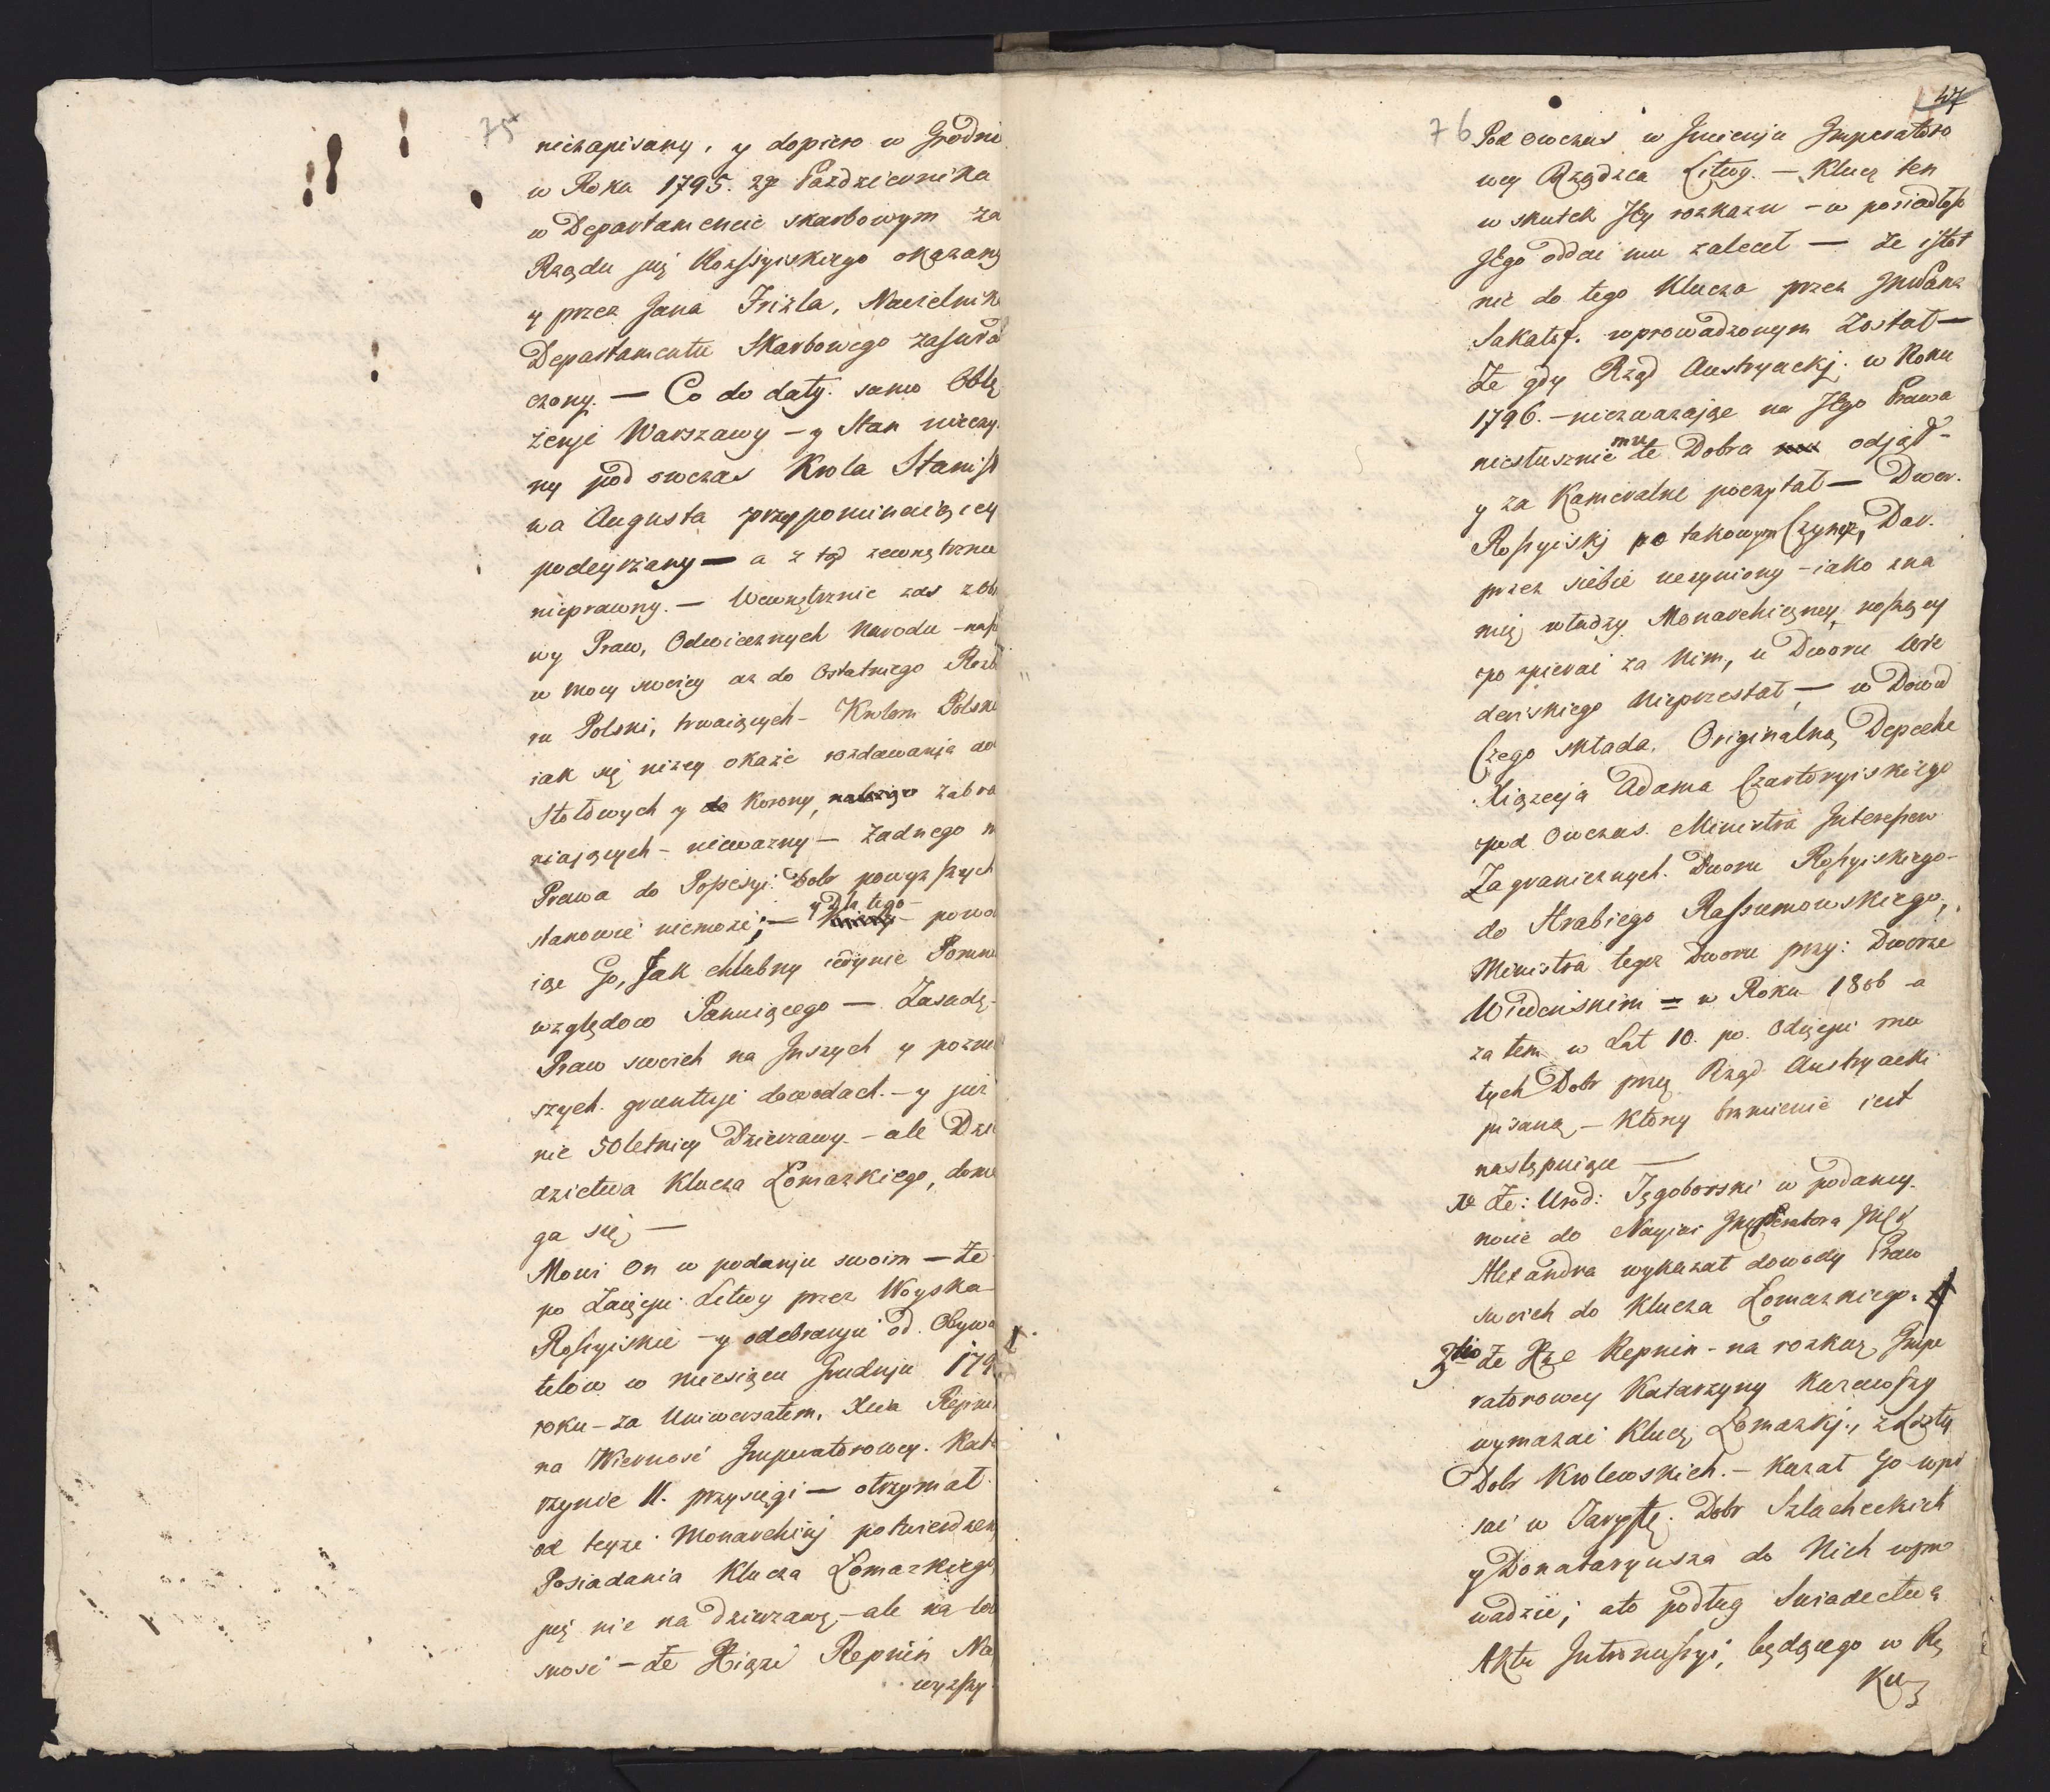 75
niezapisany, y dopiero w Grodni
w Roku 1795. 27 Pazdziernika
w Departamencie skarbowym za
Rządu już Rossyiskiego okazany
y przez Jana Frizla, Naczelnika
Departamentu Skarbowego zasura
czony. — Co do daty. samo Oblę
żenje Warszawy — y Stan nieczyn
ny pod owczas Krola Stanisła
wa Augusta przypominaiącey
podeyrzany — a z tąd zewnętrznie
nieprawny. — Wewnętrznie zas zbi
wy Praw, Odwiecznych Narodu —
w mocy swoiey az do Ostatniego Rozb
ru Polski, trwaiących — Krolom Polski
iak się niżey okaże rozdawanja do
Stołowych y do Korony, zabra
niaiących — nieważny — żadnego
Prawa do Possesyi Dobr powyzszych
stanowić niemoże; — y Dla tego — powo
iąc Go, Jak chlubny iedynie Pomni
względow Panuiącego — Zasadę
Praw swoich na Jnszych y pozni
szych. gruntuje dowodach. — y już
nie 50letniey Dzierzawy — ale Dzie
dzictwa Klucza Łomazkiego, doma
ga się —
Mowi On w podanju swoim — że
po Zaięcju Litwy przez Woyska
Rossyiskie — y odebranju od Obywa
telow w miesiącu Grudnju 179
roku — za Uniwersałem, Xcia Repni
na Wiernosć Jmperatorowey. Kata
rzynie II. przysięgi — otrzymał
od teyże Monarchinj potwierdzeni
Posiadania Klucza Łomazkiego,
już nie na dzierzawę, — ale na wła
snosć — że Xiąże Repnin Na
wyzszy
47
76 Pod owczas w Jmienju Jmperatoro
wey Rządzca Litwy. — Klucz ten
w skutek Jey rozkazu — w posiadłosć
Jego oddać mu zalecił — że istot
nie do tego Klucza przez
wprowadzonym został —
że gdy Rząd Austryackj. w Roku
1796. — niezważaiąc na Jego Prawa
niesłusznie mu te Dobra odjął —
y za Kameralne poczytał — Dwor.
Rossyiskj po takowym Czynie, Dar.
przez siebie uczyniony — iako zna
mię władzy Monarchiczney noszący
po zpierać za Nim, u Dworu Wie
deńskiego Nieprzestał, — w Dowod
Czego składa. Originalną Depeche
Xiążecja Adama Czartoryiskiego
pod Owczas. Ministra Jnteressow
Zagranicznych. Dworu Rossyiskiego —
do Hrabiego Rassumowskiego,
Ministra tegoz Dworu przy: Dworze
Wiedeńskim = w Roku 1806 — a
za tem w Lat 10. po Odięcju mu
tych Dobr przez Rząd Austryacki
pisaną, — Ktorey brzmienie iest
następuiące —
że: Urod: Tęgoborski w podaney
nocie do Nayjaś Jmperatora JMCi
Alexandra wykazał dowody Praw
swoich do Klucza Łomazkiego.
3tio że Xże Repnin — na rozkaz Jmpe
ratorowey Katarzyny kazawszy
wymazać Klucz Łomazkj., z Listy
Dobr Krolewskich. — kazał Go wpi
sać w Taryffę. Dobr Szlacheckich
y Donataryusza do Nich wpro
wadzić; ato podług Swiadectwa
Aktu Jntromissyi, będącego w Rę
Ku